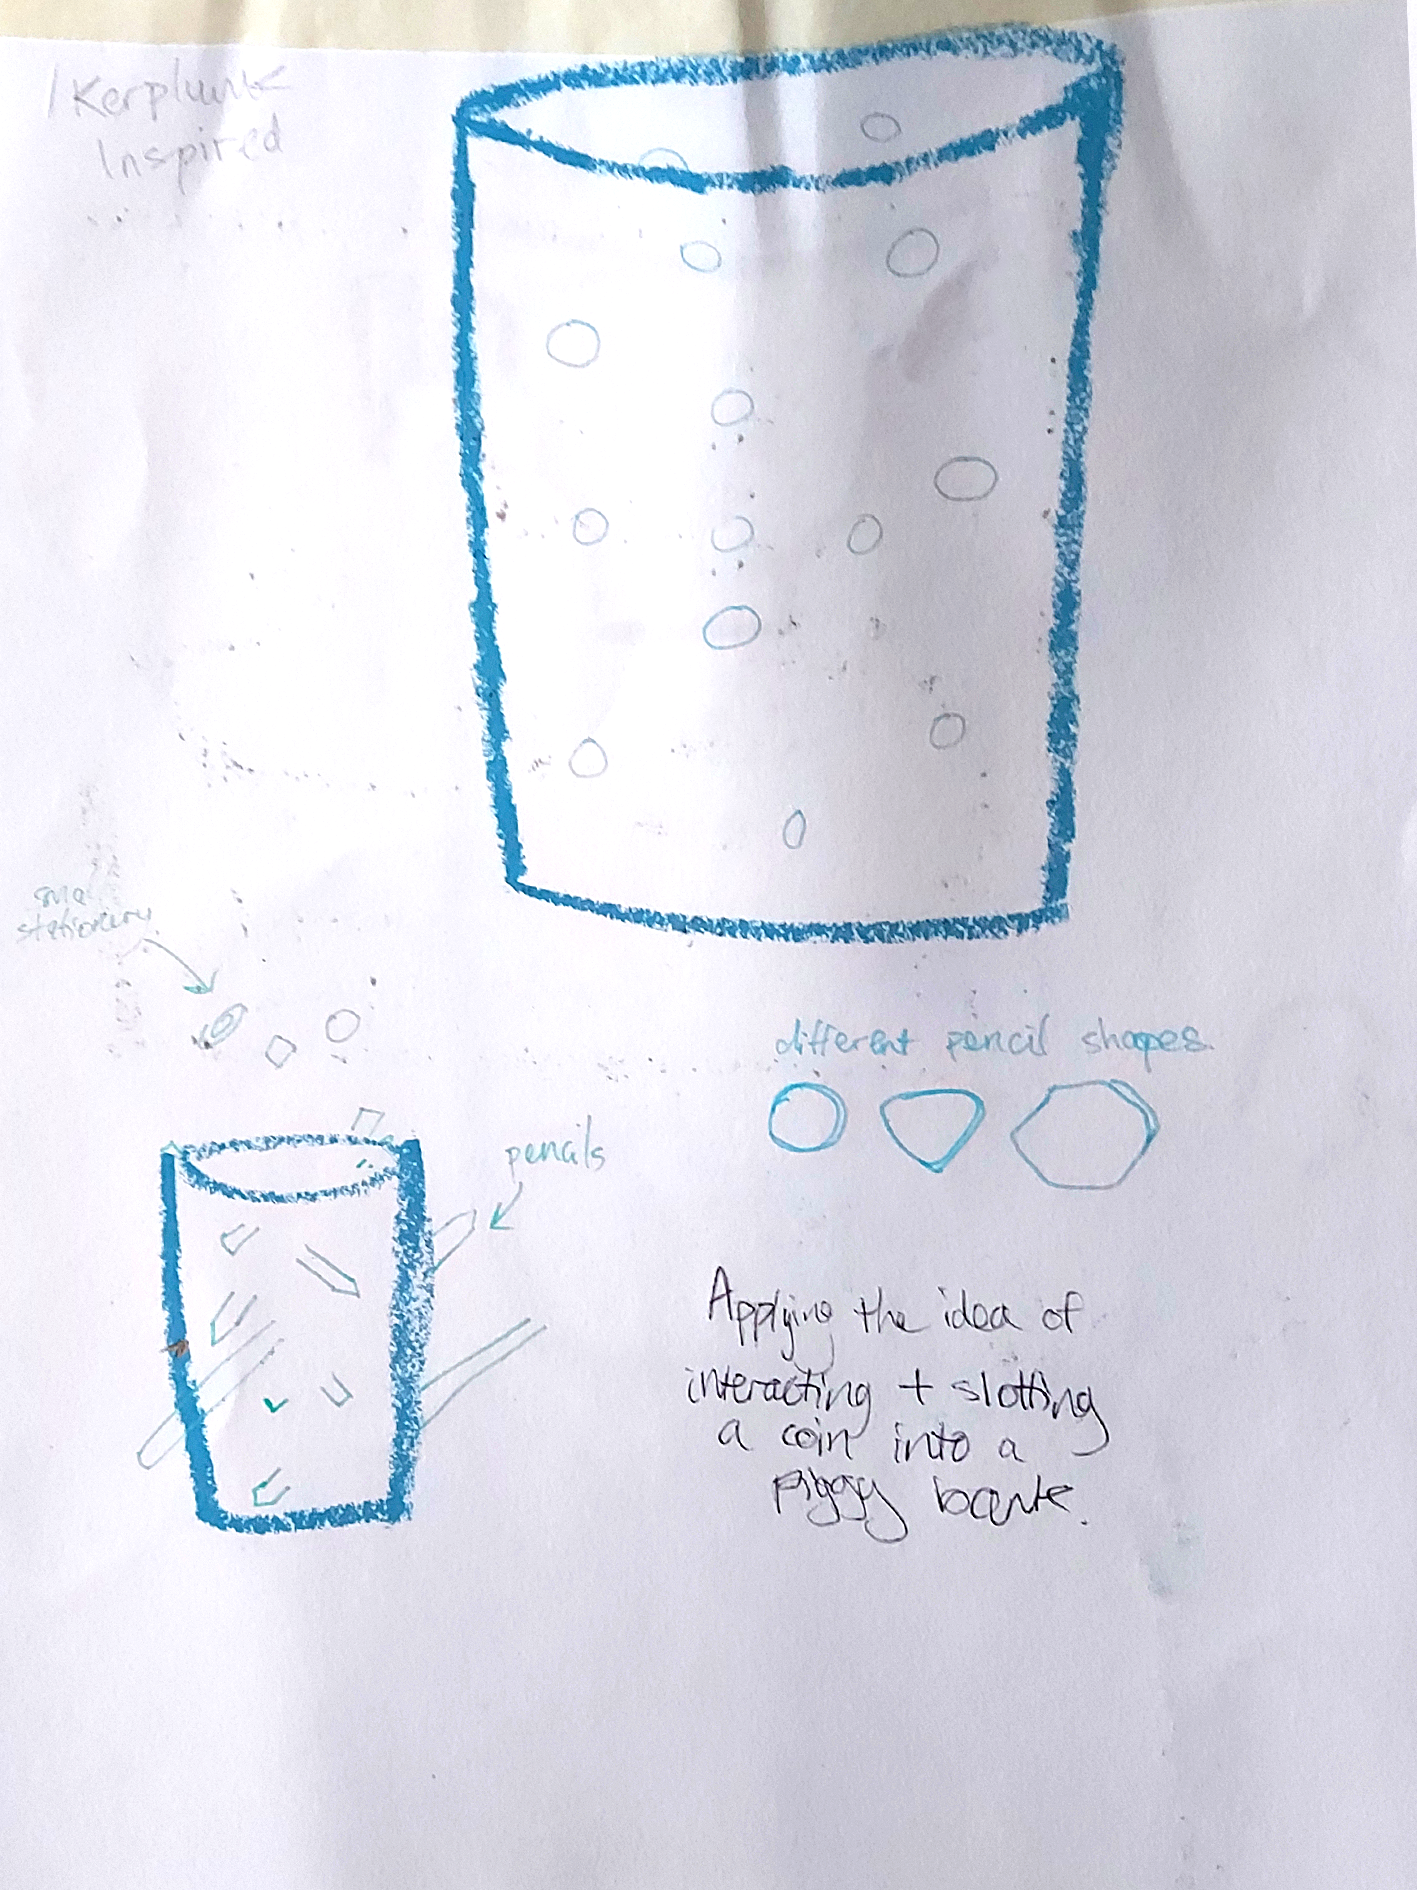 /Kerplunk
Inspired
small
stationery
different pencil shapes.
pencils
Applying the idea of
interacting + slotting
a coin into a
piggy bank.